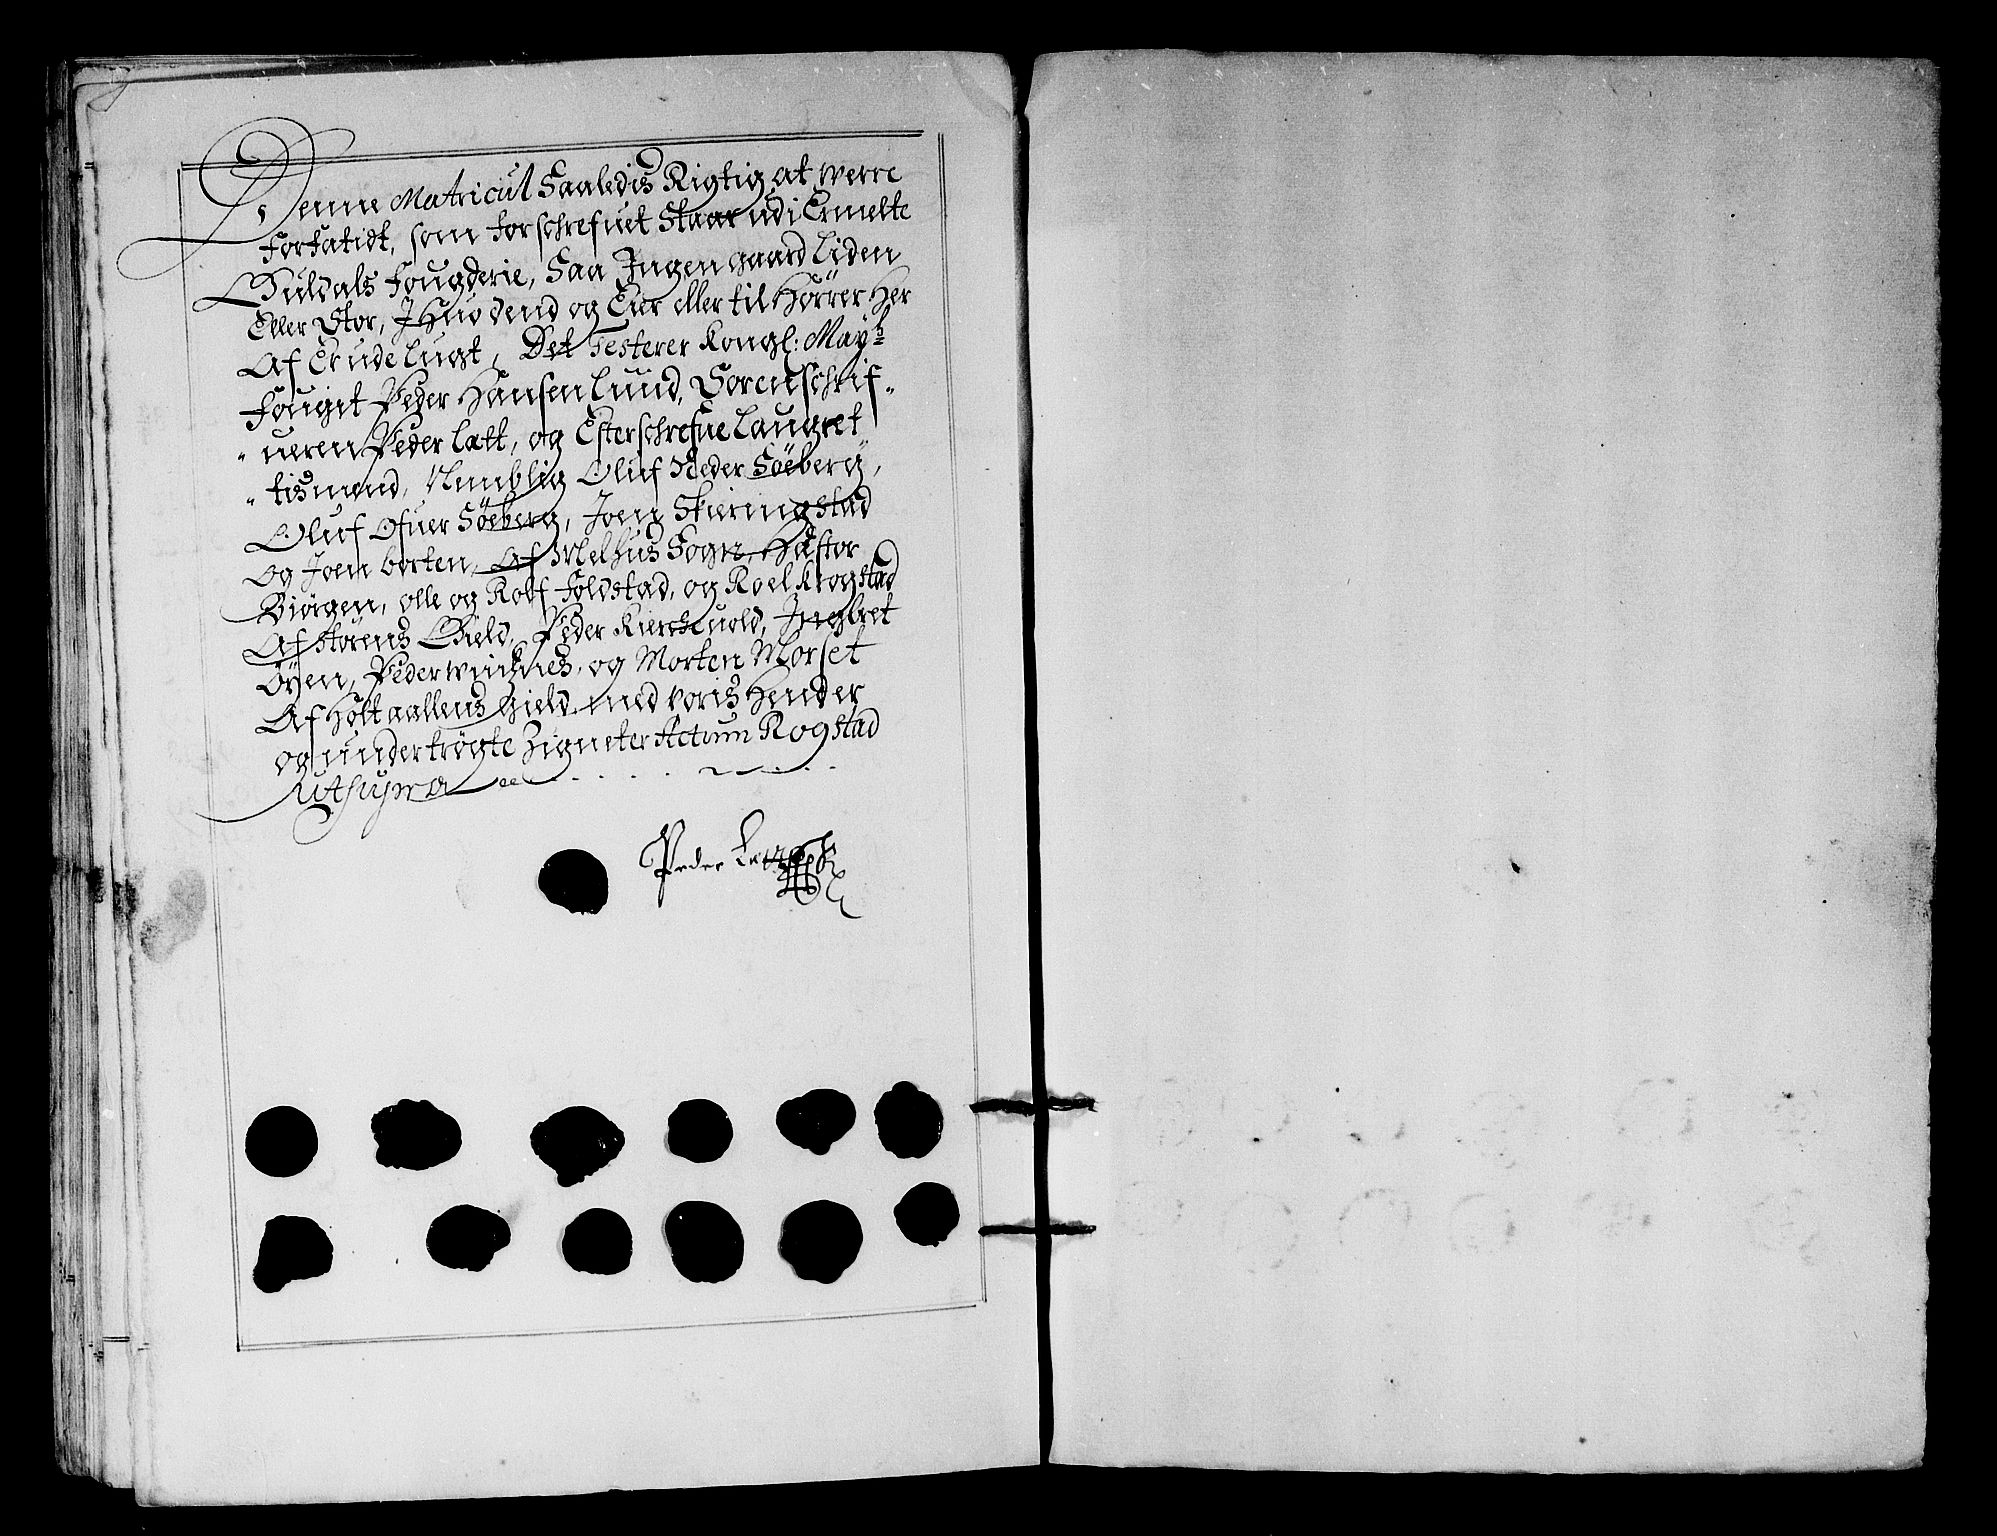 Denne Matricul Saaledis Rigtig at werre
forfatidt, som forschrefuet Staar udi Ermelte
Guldals fougderie, Saa Ingen gaard liden
Eller Stor, I Huo dend og Eier eller til Hørrer Her
Af Er udelugt, Det Testerer Kongl: May:
fougit Peder Hansen Lund, Sorenschrif„
„ueren Peder Latt, og Efterschrefne Laugret
„tismend, Nemblig Oluf Neder Søeberg,
Oluf Ofuer Søeberg, Joen Skieringstad
og Joen borten, Af Melhus Sogn, Hastor
Biørgen, olle og Rolf foldstad, og Roel Krogstad
Af Størens Gield, Peder Kierckuold, Ingbret
Øyen, Peder winsnes, og Morten Morset
Af Holtaallens Gield, med voris Hender
og undertrøgte Zigneter Actum Rogstad
Ut supra
Peder